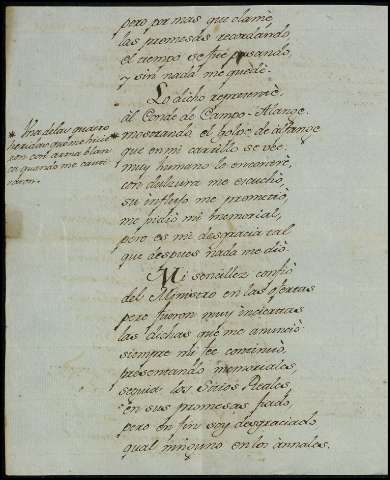 pero por mas que clamè,
las promesas recordando,
el tiempo se fuè pasando,
y sin nada me quedè.
Lo dicho representè,
al Conde de Campo-Alange
mostrando el golpe de alfange
que en mi carrillo se vee.
muy humano le encontrè,
con dulzura me escuchò,
su influfo me prometiò,
me pidiò mi memorial,
pero es mi desgracia tal
que despues nada me diò.
* Una de las quatro
heridas que me hicie
ron con arma blan
ca quando me cauti
váron.
Mi sencillez confiò
del Ministro en las ofertas
pero fueron muy inciertas
las dichas que me anunciò:
siempre mi fee continuò,
presentando memoriales,
seguia los Sitios Reales,
en sus promesas fiado,
pero en fin soy desgraciado
qual ninguno en los annales.